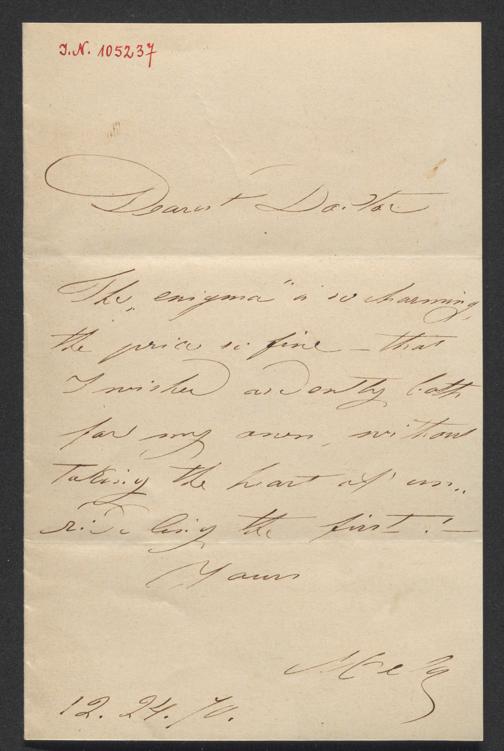 I.N. 105237
Dearest Doctor
The „enigma" is so charming,
the price so fine – that
I wished ardently both
for my own, without
taking the heart of un„
ridling the first! –
Yours
12. 24. 70.